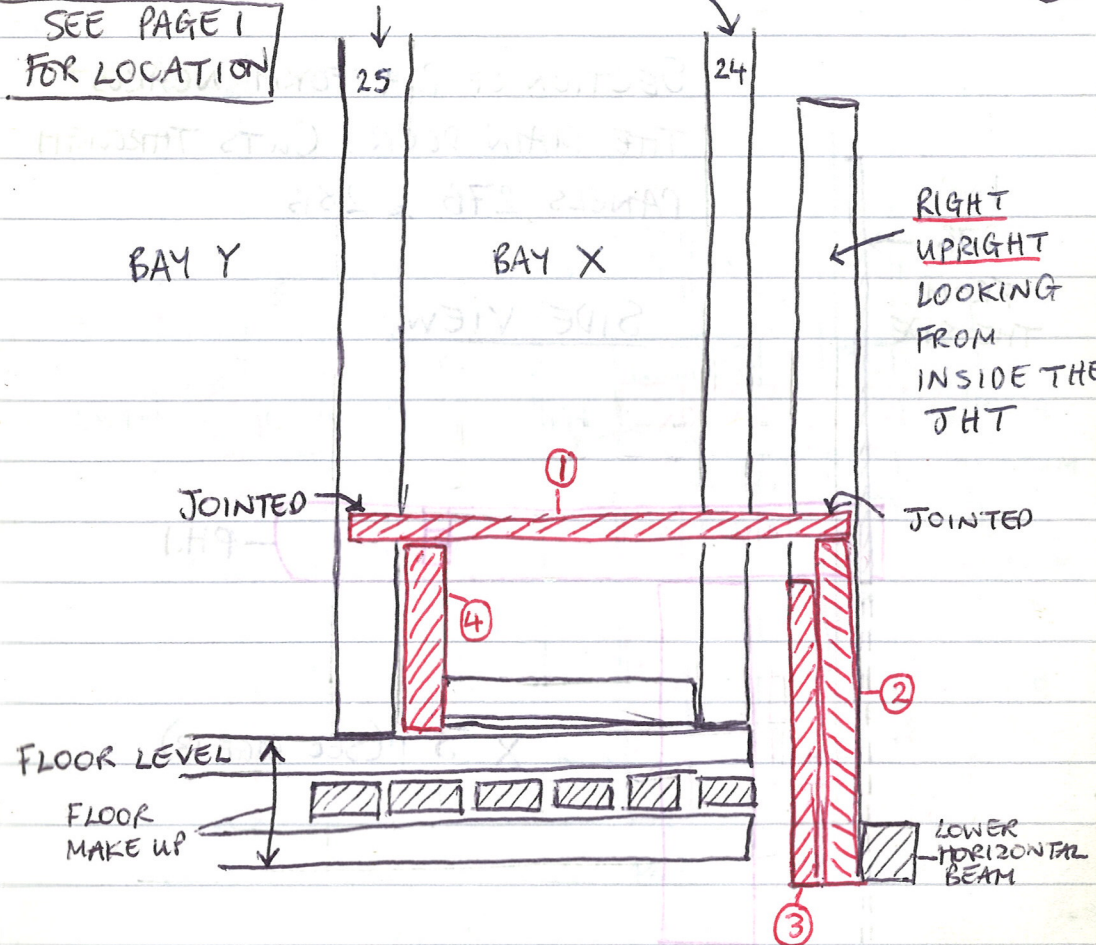 SEE PAGE 1
FOR LOCATION
25
24
BAY Y
BAY X
RIGHT
UPRIGHT
LOOKING
FROM
INSIDE THE
JHT
1
JOINTED
JOINTED
4
2
FLOOR LEVEL
FLOOR
MAKE UP
LOWER
HORIZONTAL
BEAM
3